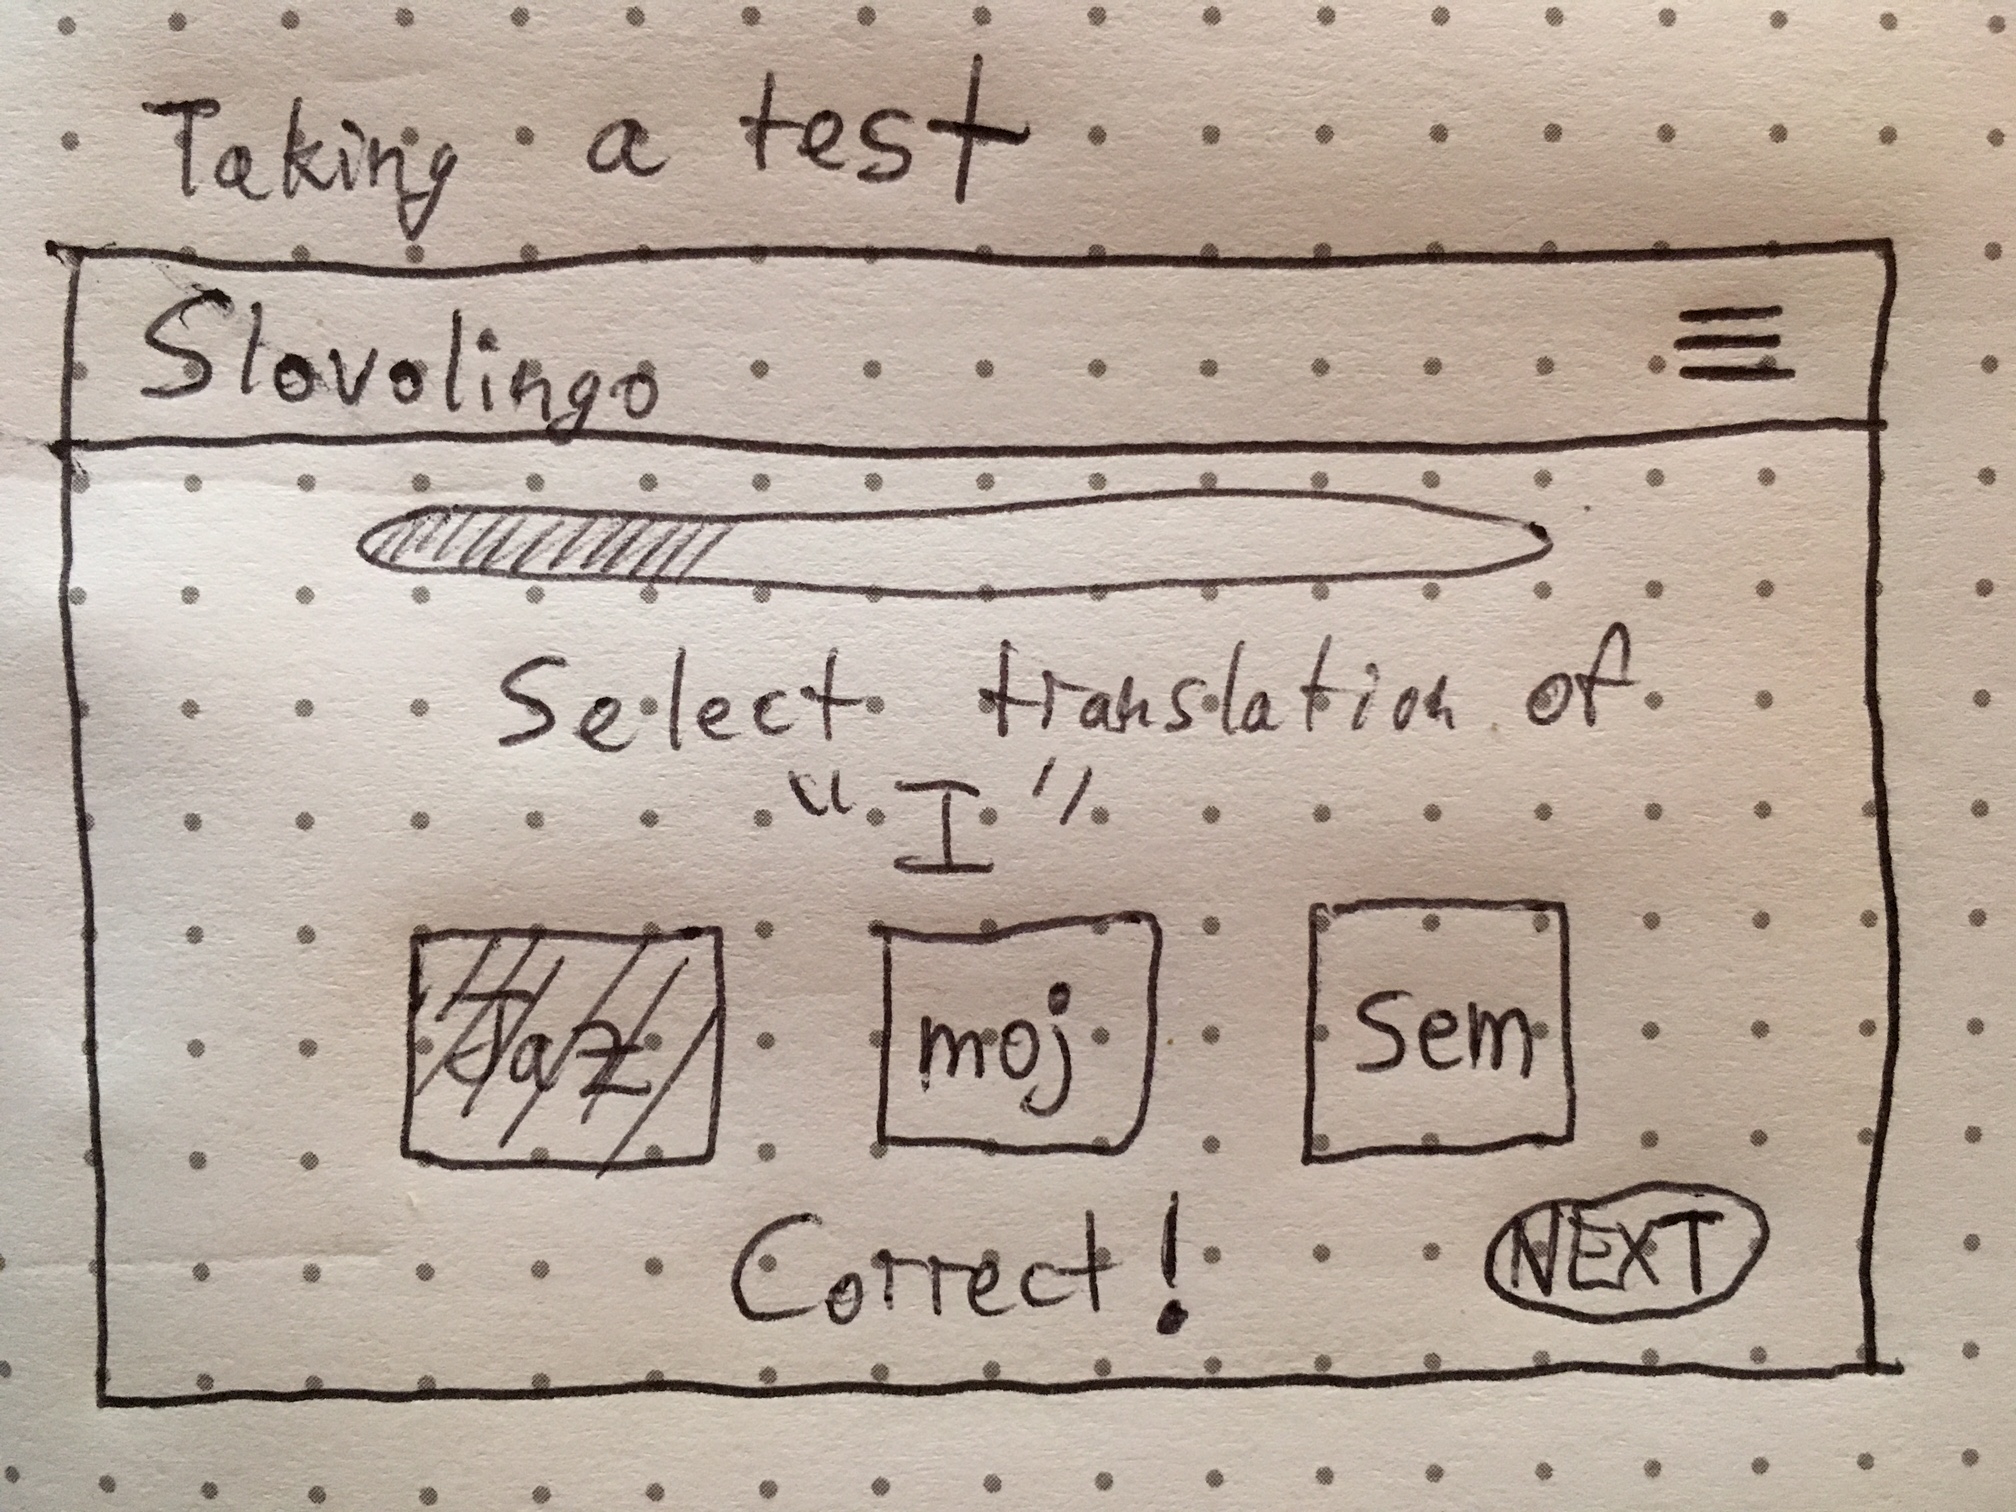 Taking a test
Slovolingo
Select translation of
"I"
Jaz moj sem
Correct! NEXT